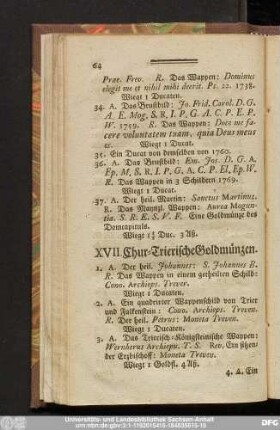 64
Prae. Frev. R. Das Wappen: Dominus
elegit me et nihil mihi deerit. Ps. 22. 1738.
Wiegt 1 Ducaten.
34. A. Das Brustbild: Jo. Frid. Carol. D. G.
A. E. Mog. S. R. I. P. G. A. C. P. E. P.
W. 1759. R. Das Wappen: Doce me fa-
cere voluntatem tuam, quia Deus meus
Wiegt 1 Ducat.
35. Ein Ducat von denselben von 1760.
36. A. Das Brustbild: Em. Jos. D. G. A.
Ep. M. S. R. I. P. G. A. C. P. El. Ep. W.
R. Das Wappen in 3 Schildern 1769.
Wiegt 1 Ducat.
37. A. Der heil. Martin: Sanctus Martinus.
R. Das Maynzl. Wappen: Aurea Mogun-
tia. S. R. E. S. V. F. Eine Goldmünze des
Domcapituls.
Wiegt Duc. 3 Aß.
XVII. Chur-Trierische Goldmünzen.
1. A. Der heil. Johannes: S. Johannes B.
R. Das Wappen in einem getheilten Schild:
Cono. Archieps. Trever.
Wiegt 1 Ducaten.
2. A. Ein quadrirter Wappenschild von Trier
und Falkenstein: Cono. Archieps. Treveren.
R. Der heil. Petrus: Moneta Treveri.
Wiegt 1 Ducaten.
3. A. Das Trierisch-Königsteinische Wappen:
Wernherus Archiepis. T. S. Rev. Ein sitzen-
der Erzbischoff: Moneta Treven.
Wiegt 1 Goldfl. 4 Aß.
4. A. Ein
Universitäts- und Landesbibliothek Sachsen-Anhalt